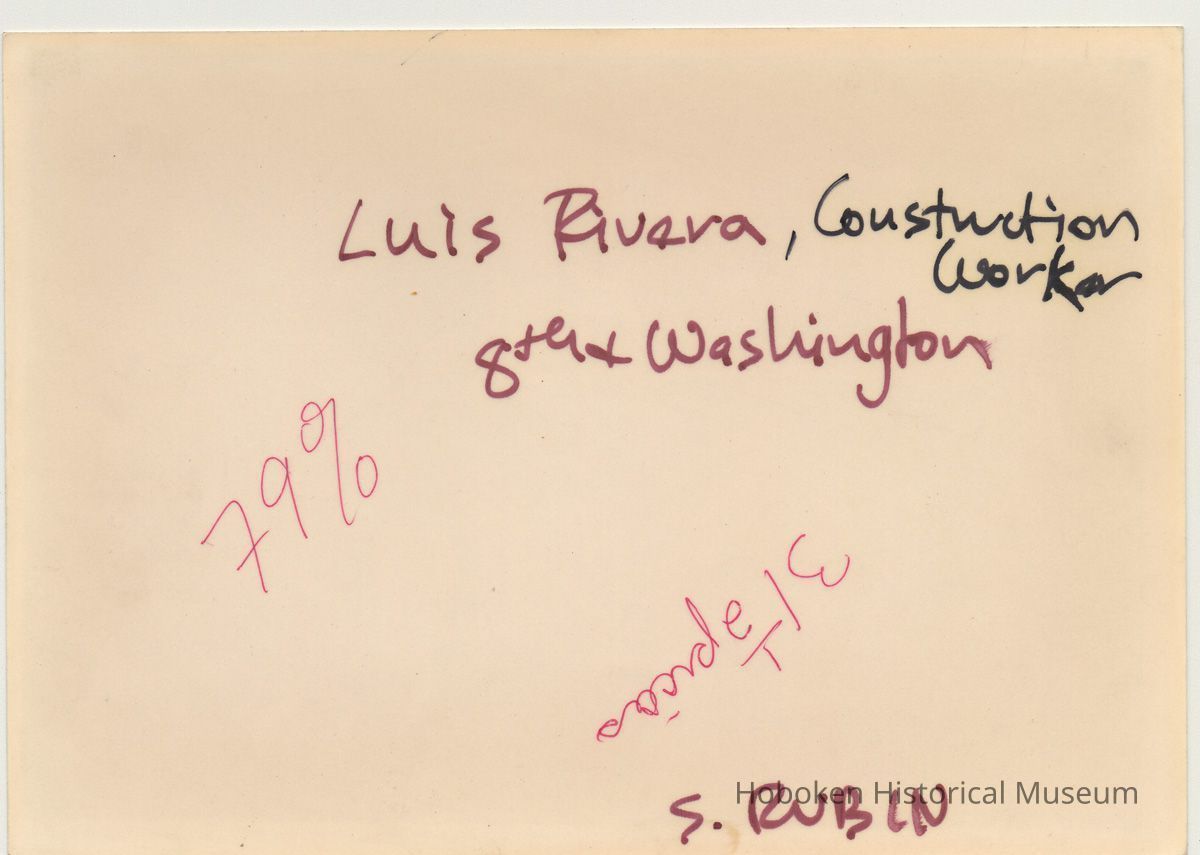 Luis Rivera, Construction
Worker
8th + Washington
79%
S. RUBIN
Hoboken Historical Museum